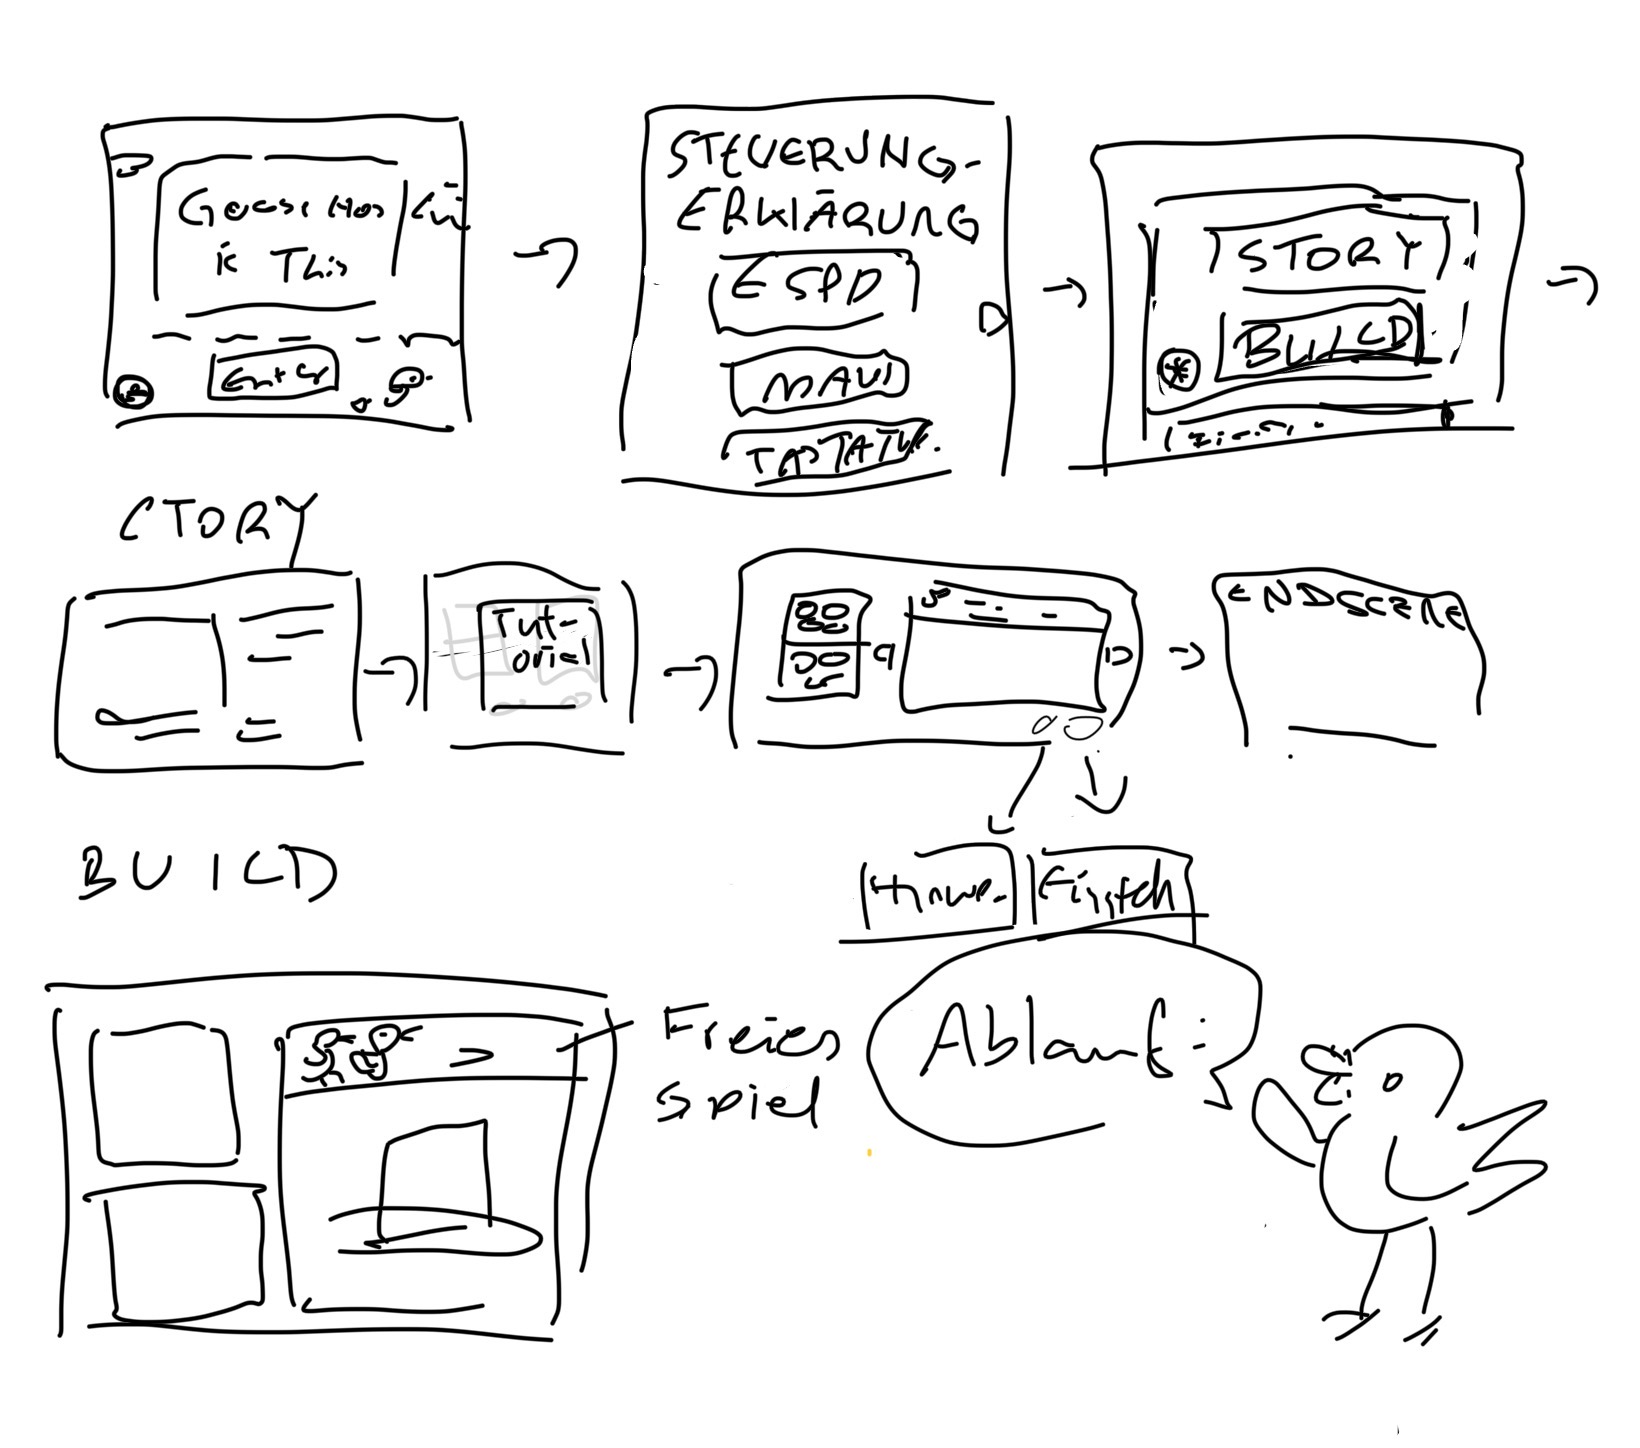 is This
Enter
STEUERUNG-
ERKLÄRUNG
ESPD
MAUS
TASTATUR
STORY
BUILD
STORY
Tut-
orial
ENDSCENE
BUILD
Hinwe.
Freies
Spiel
Ablauf: